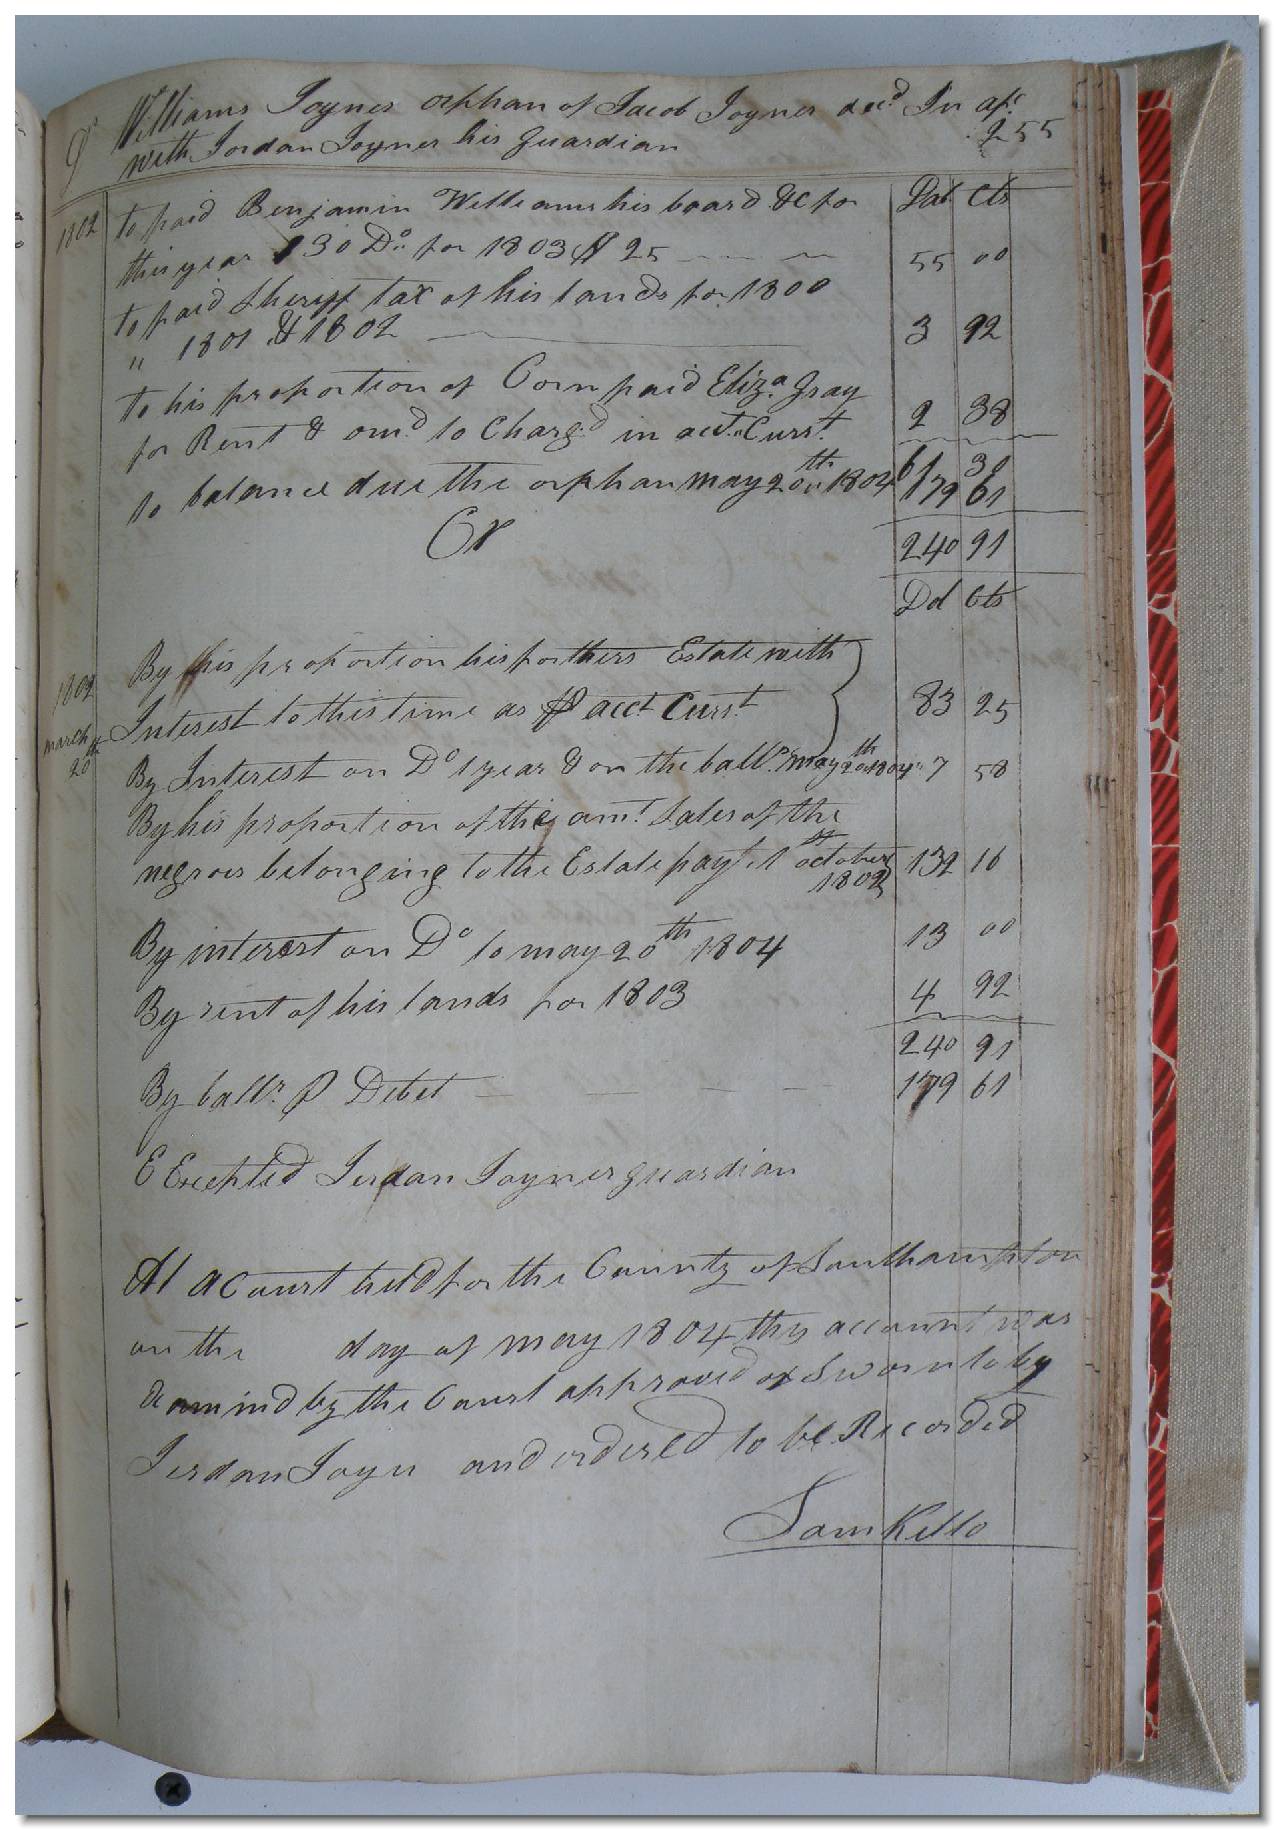 Dr Williams Joyner orphan of Jacob Joyner decd In apc
with Jordan Joyner his guardian 255
Dol Cts
1802 to paid Benjamin Williams his board &c for
this year $30 Do for 1803 $25 55 00
to paid Sheriff tax of his lands for 1800
" 1801 & 1802 3 92
to his proportion of Corn paid Eliza Gray
for Rent & omd to Chargd in acct Curst 2 38
61 30
to balance due the orphan may 20th 1804 179 61
Cr 240 91
Dol Cts
1802 By his proportion his forthers Estate with
march 20th Interest to this time as P acct Curst 83 25
By Interest on Do 1 year & on the balle may 20th 1804 7 58
By his proportion of the amt Sales of the
negroes belonging to the Estate payt 1st october
1802 132 16
By interest on Do to may 20th 1804 13 00
By rent of his lands for 1803 4 92
240 91
By balle P Debet 179 61
E Excepted Jordan Joyner guardian
At a Court held for the County of Southampton
on the day of may 1804 this account was
examind by the Court approved of Sworn to by
Jerdan Joyn and ordered to be Recorded
Sam Kello